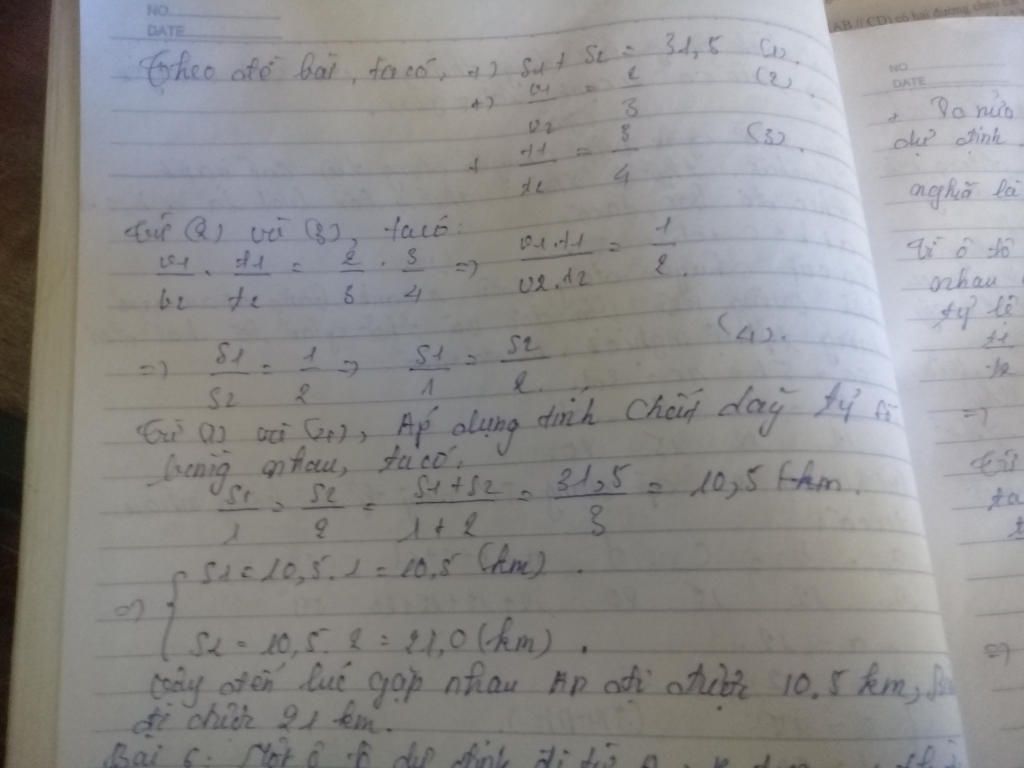 NO.
DATE
Theo đề bài, ta có, +) S1 + S2 = 31,5 (1).
+) v1/v2 = 2/3 (2).
+ t1/t2 = 3/4 (3).
Từ (2) và (3), ta có:
v1/v2 . t1/t2 = 2/3 . 3/4 => v1.t1/v2.t2 = 1/2.
=> S1/S2 = 1/2 => S1/1 = S2/2. (4).
Từ (1) và (4), Áp dụng tính chất dãy tỷ số
bằng nhau, ta có.
S1/1 = S2/2 = S1+S2/1+2 = 31,5/3 = 10,5 (km.
=> { S1 = 10,5.1 = 10,5 (km).
S2 = 10,5.2 = 21,0 (km).
Vậy đến lúc gặp nhau An đi được 10.5 km,
đi được 21 km.
Bài 6: Một ô tô dự định đi từ A
AB // CD) có hai đường chéo
NO
DATE
+ Do nửa
dự định
nghĩa là
Vì ô tô
nhau
tỷ lệ
t1
t2
=>
Từ
ta
=>